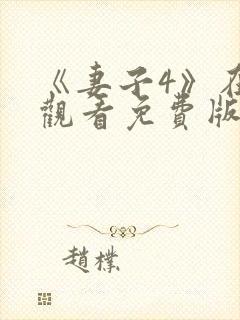 《妻子4》在
觀看免費版
趙樸